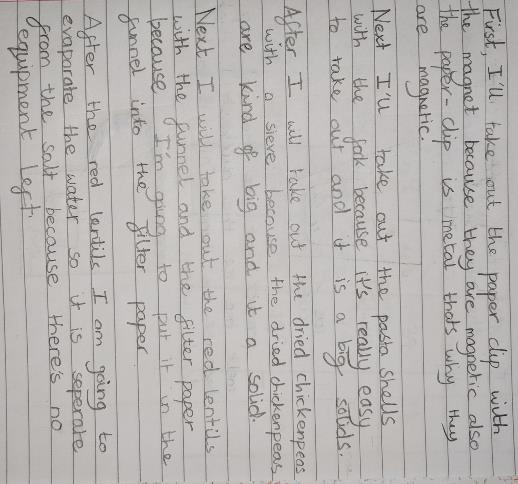 First, I'll take out the paper clip with
the magnet because they are magnetic also
the paper-clip is metal thats why they
are magnetic!
Next I'll take out the pasta shells
with the fork because it's really easy
to take out and it is a big solids.
After I will take out the dried chickenpeas
with a sieve because the dried chickenpeas
are kind of big and it a solid.
Next I will take out the red lentils
with the funnel and the filter paper
because I'm going to put it in the
funnel into the filter paper
After the red lentils I am going to
evaparate the water so it is seperate
from the salt because there's no
equipment left.